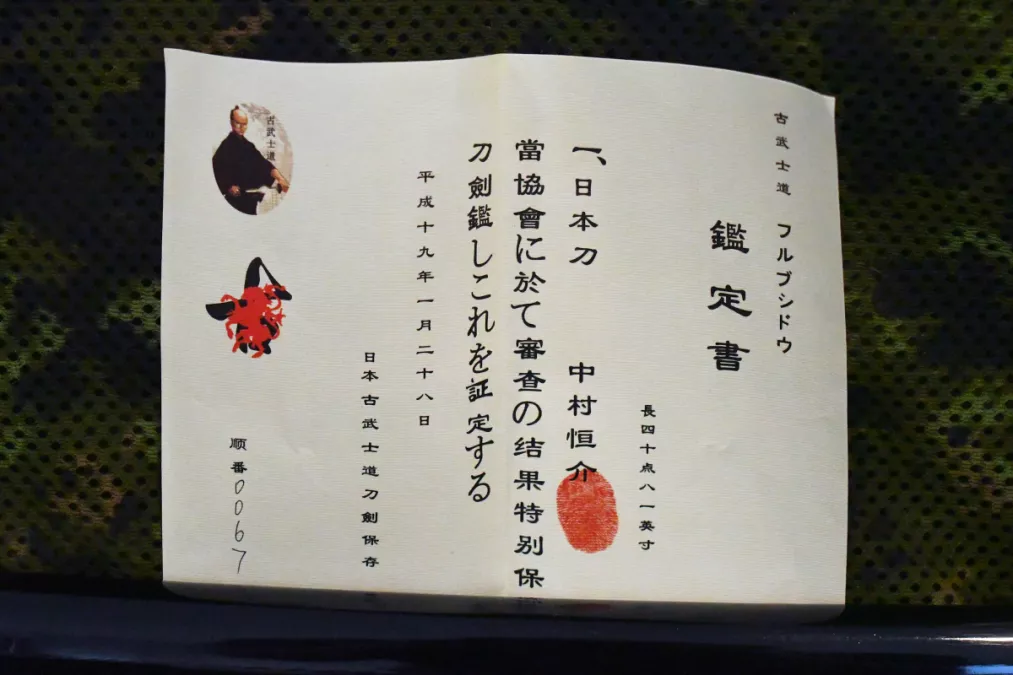 古武士道 フルブシドウ
鑑定書
長四十点八一英寸
一、日本刀 中村恒介
當協會に於て審查の结果特别保
刀劍鑑しこれを証定する
平成十九年一月二十八日
日本古武士道刀劍保存
古武士道
顺番0067